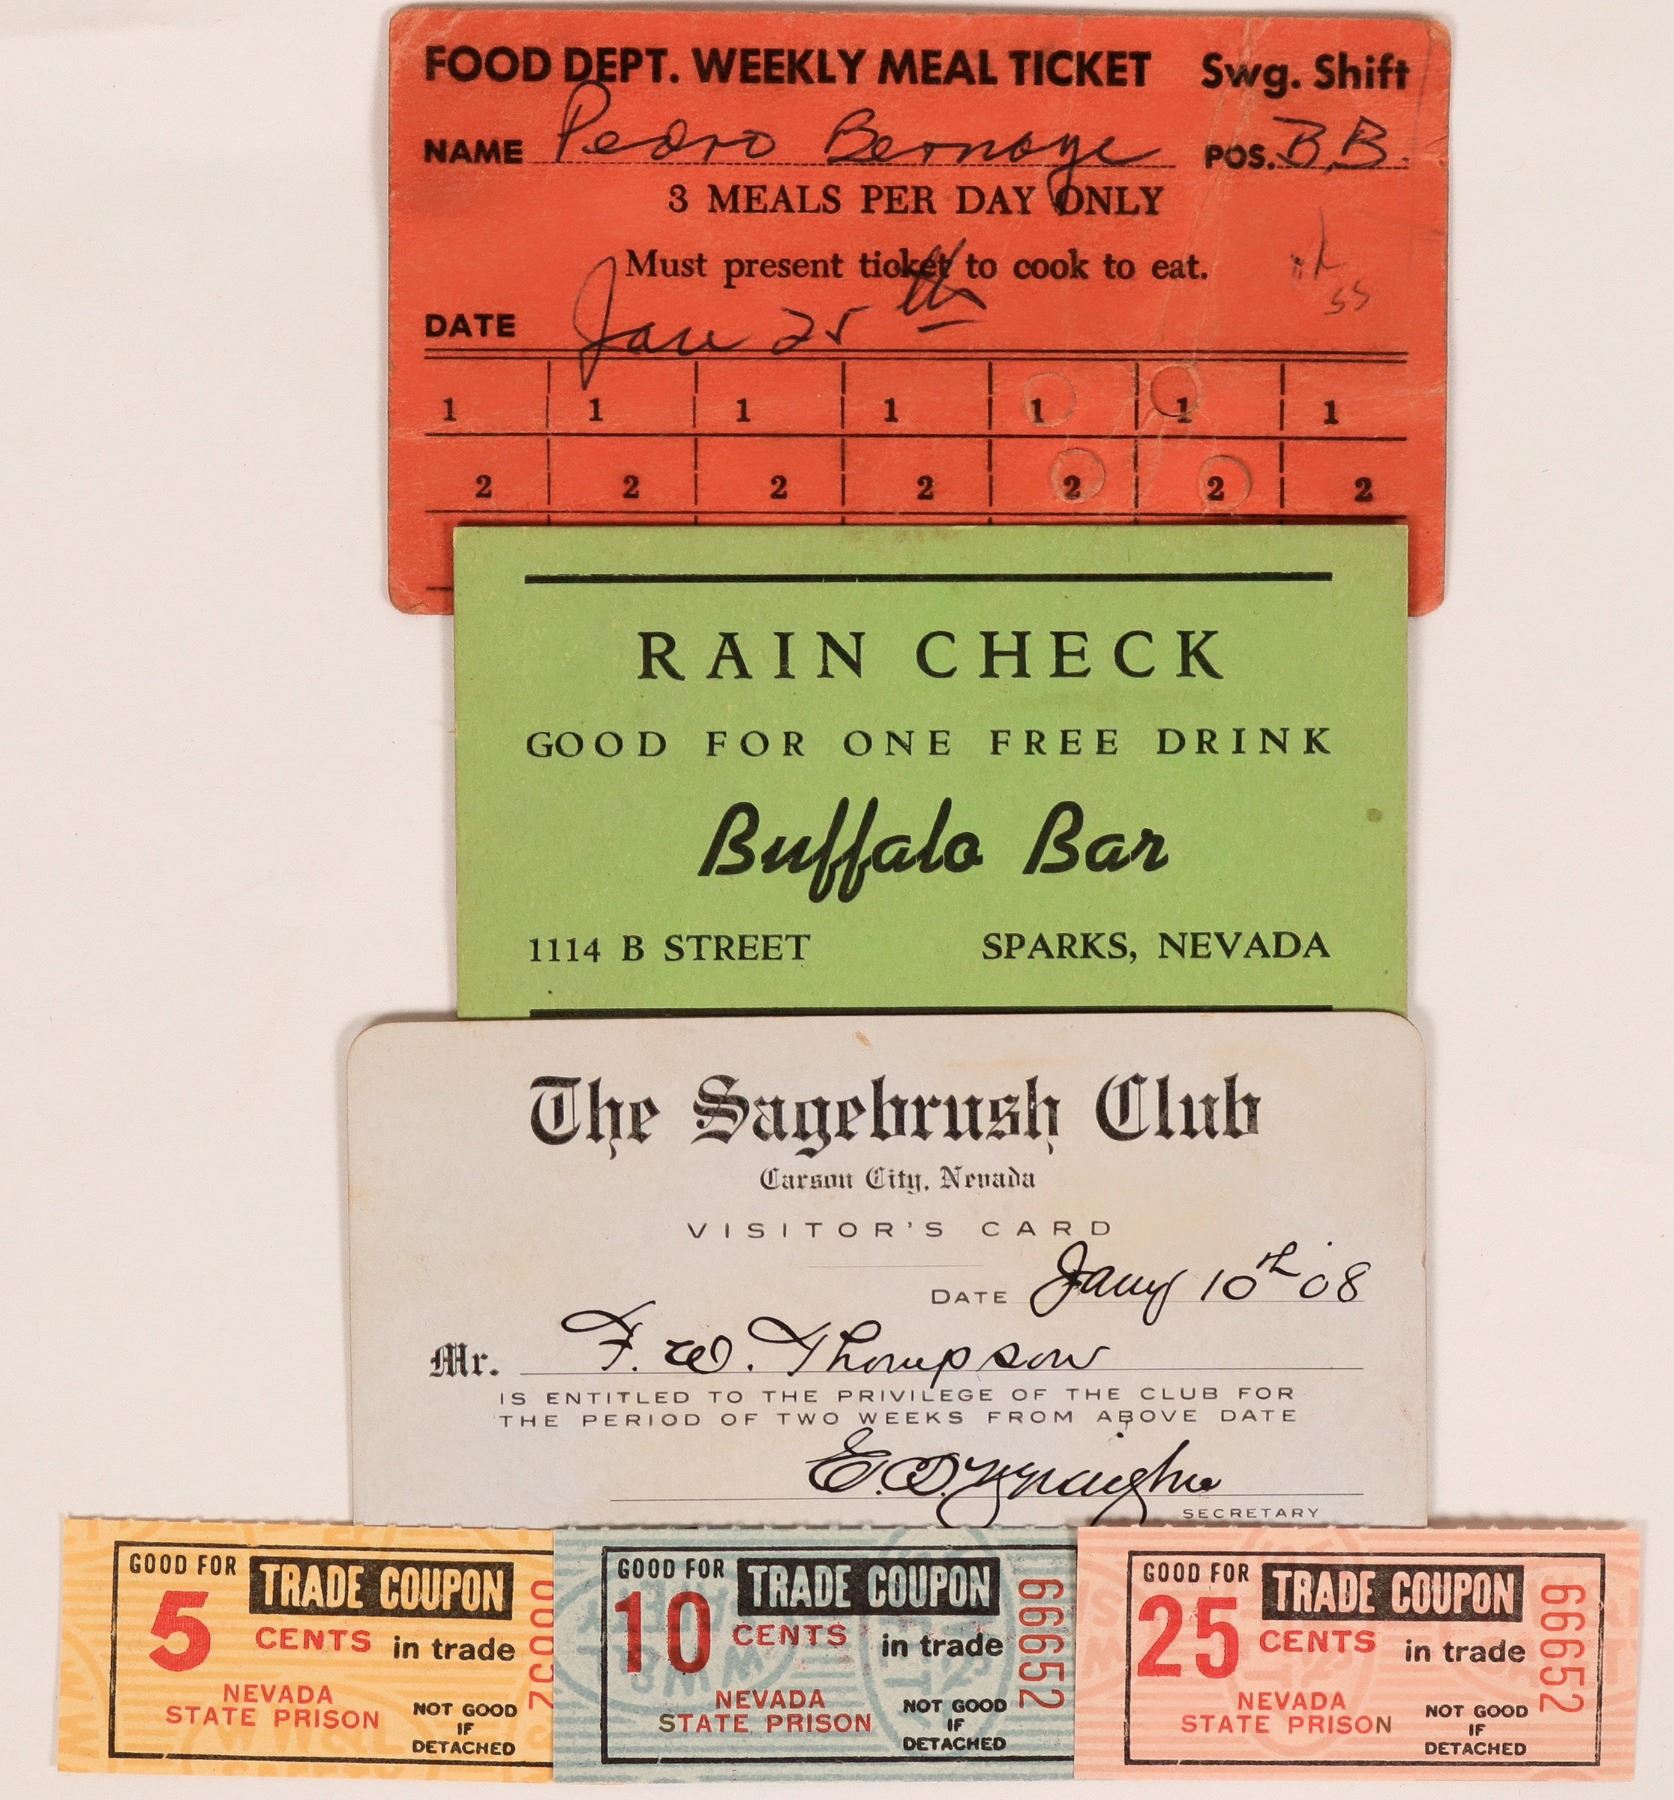 FOOD DEPT. WEEKLY MEAL TICKET Swg. Shift
NAME Pedro Bernoye POS. B.B.
3 MEALS PER DAY ONLY
Must present ticket to cook to eat.
DATE Jan 25th
1 1 1 1 1 1 1
2 2 2 2 2 2 2
RAIN CHECK
GOOD FOR ONE FREE DRINK
Buffalo Bar
1114 B STREET SPARKS, NEVADA
The Sagebrush Club
Carson City, Nevada
VISITOR'S CARD
DATE Jany 10th '08
Mr. F. W. Thompson
IS ENTITLED TO THE PRIVILEGE OF THE CLUB FOR
THE PERIOD OF TWO WEEKS FROM ABOVE DATE
SECRETARY
GOOD FOR TRADE COUPON
5 CENTS in trade
NEVADA
STATE PRISON
NOT GOOD
IF
DETACHED
GOOD FOR TRADE COUPON
10 CENTS in trade
NEVADA
STATE PRISON
NOT GOOD
IF
DETACHED
66652
GOOD FOR TRADE COUPON
25 CENTS in trade
NEVADA
STATE PRISON
NOT GOOD
IF
DETACHED
66652